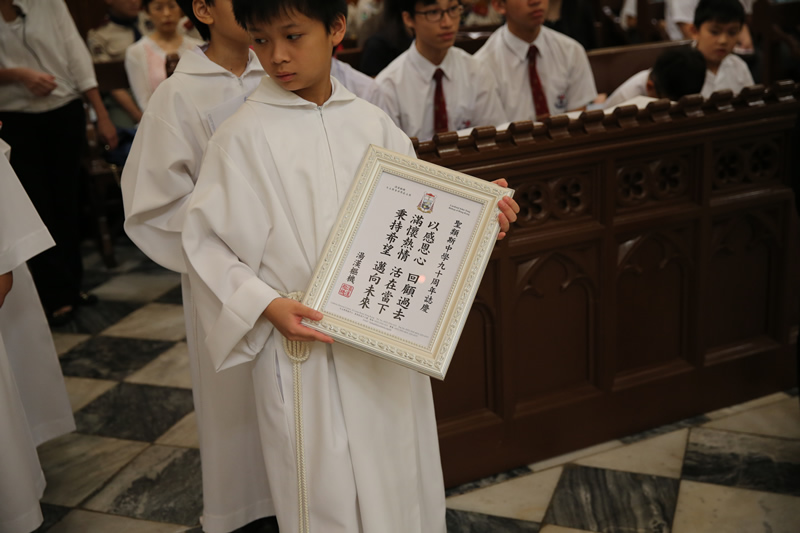 聖類斯中學九十周年誌慶
以感恩心 回顧過去
滿懷熱情 活在當下
秉持希望 邁向未來
湯漢樞機